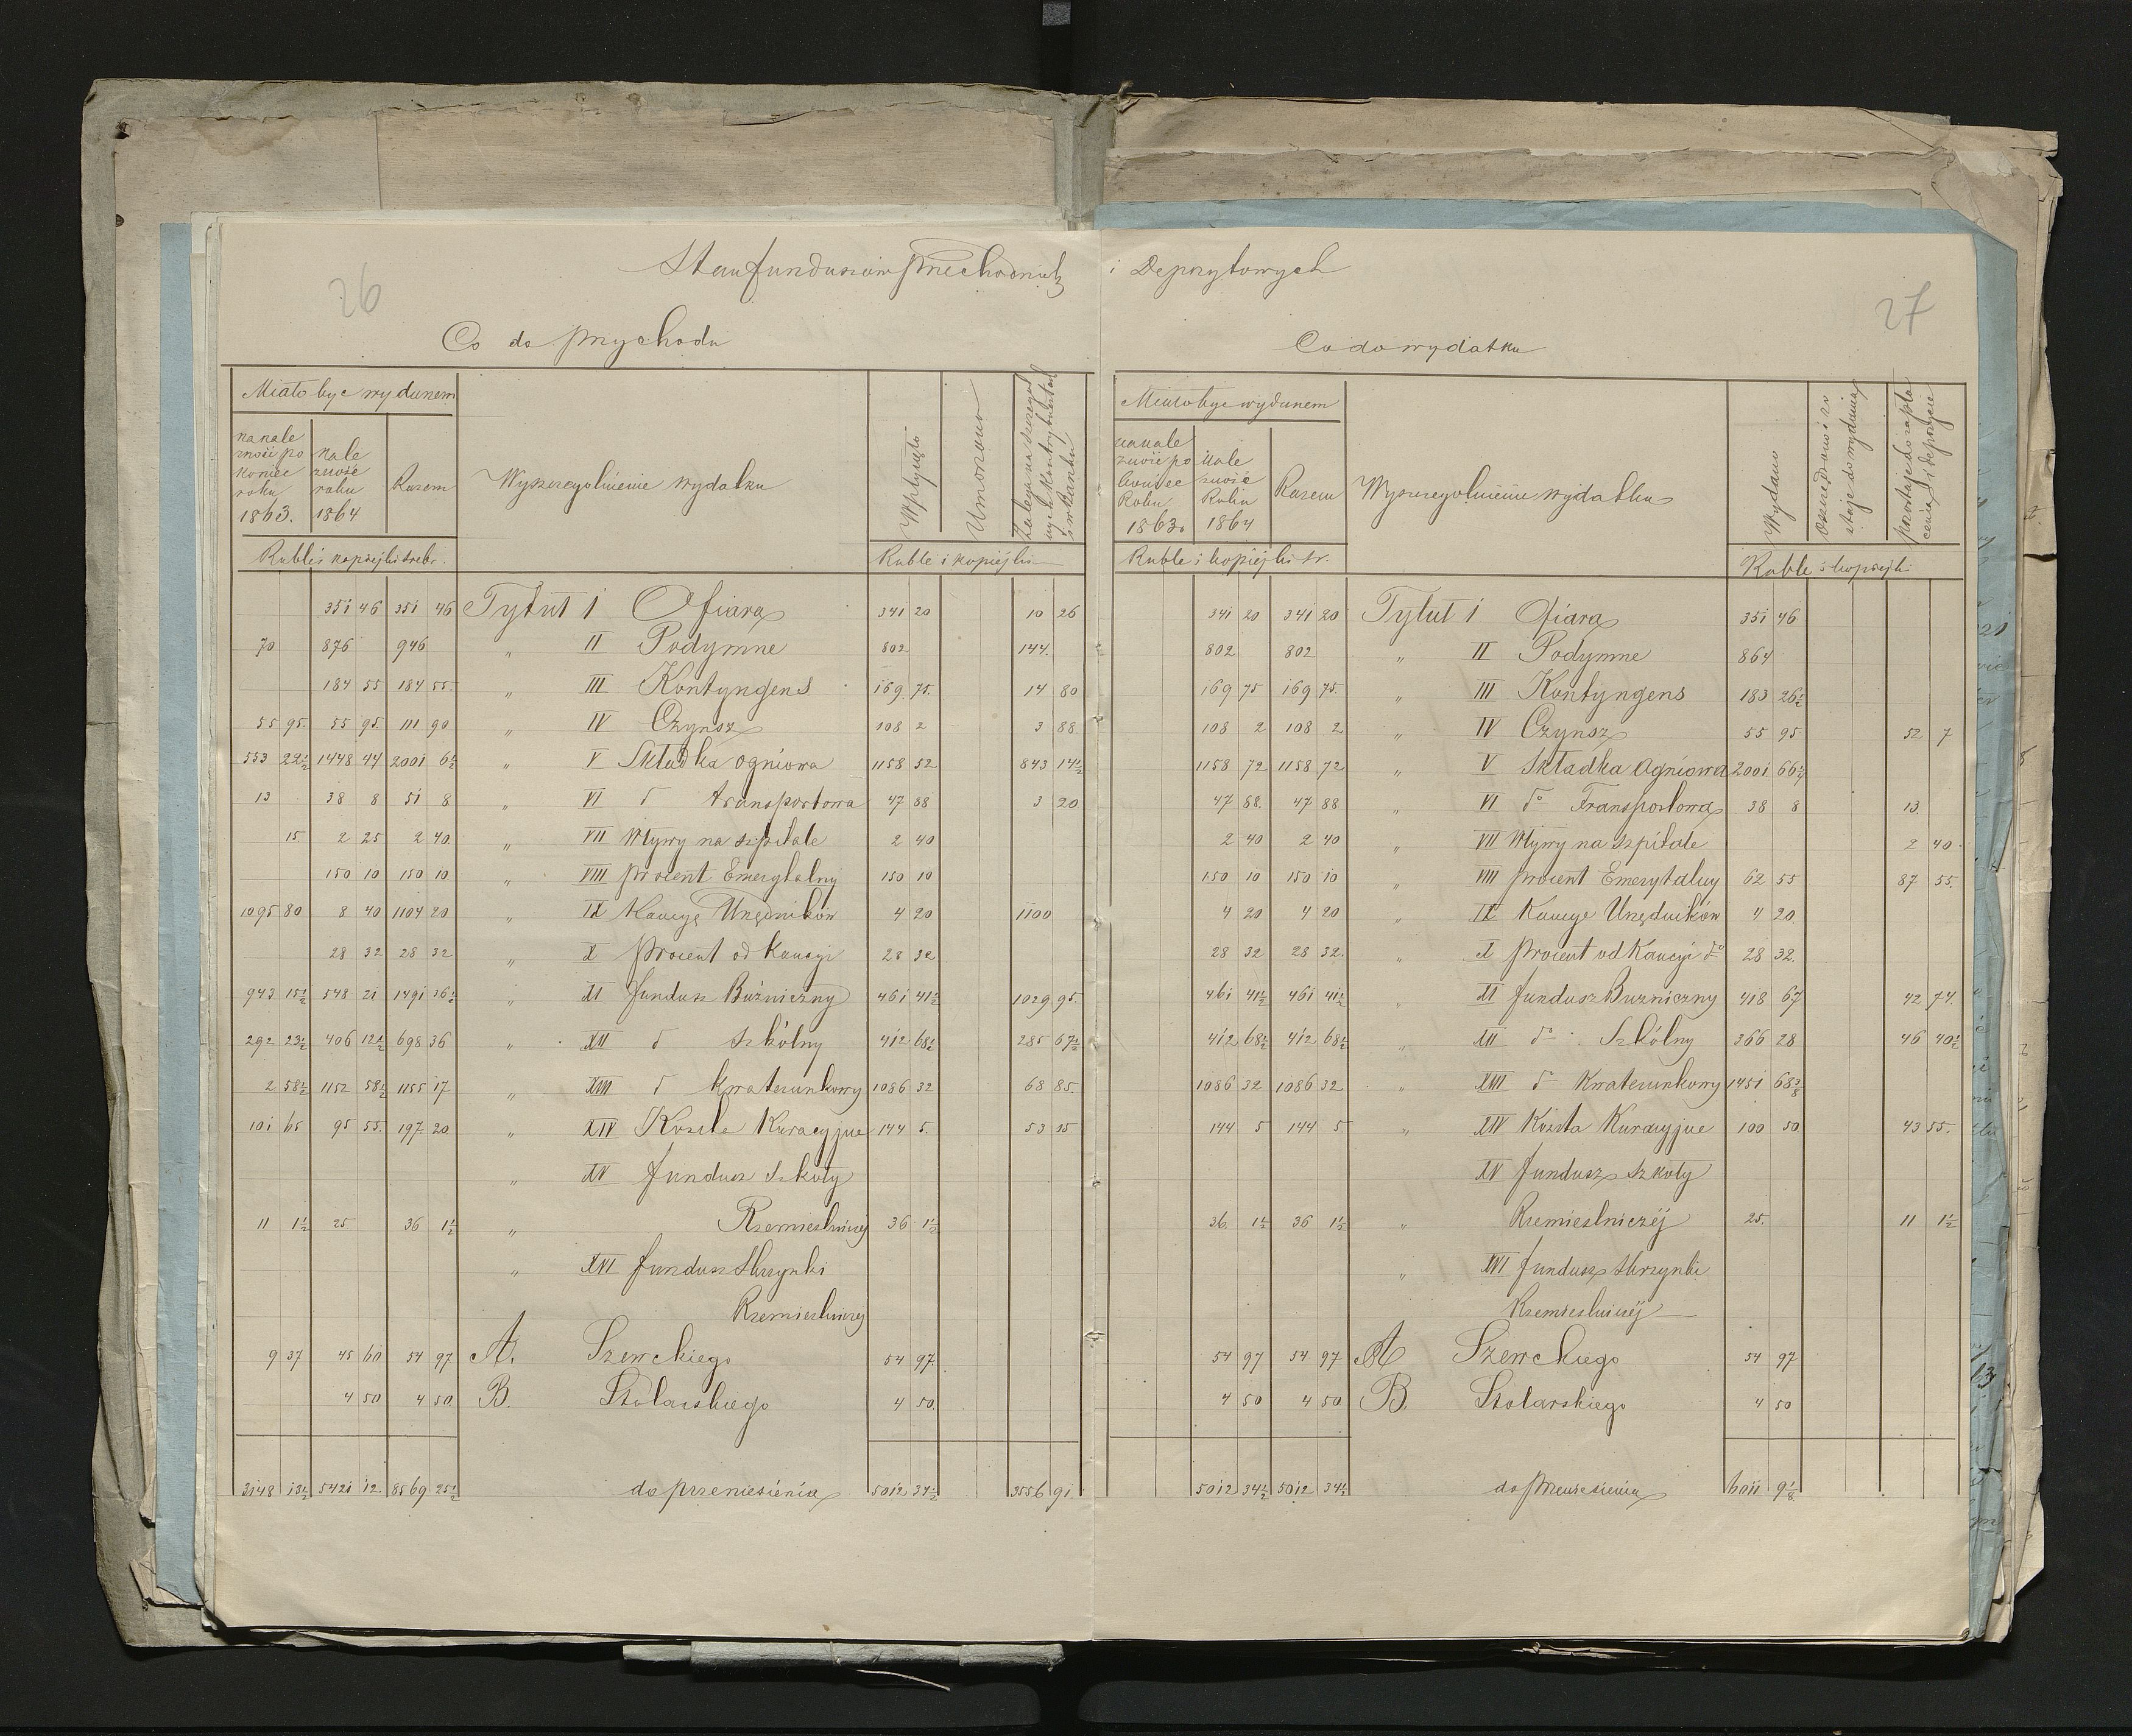 Stan funduszów przechodnich i Depozytowych
26
Co do przychodu
Miało być wydanem
na nale
żność po
koniec
roku
1863.
nale
żność
roku
1864
Razem
Wyszczególnienie wydatku
Wpłynęło
Umorzono
Ruble i kopiejki srebr.
Ruble i kopiejki
351 46 351 46 Tytuł 1 Ofiara 341 20 10 26
70 876 946 „ II Podymne 802 144.
184 55 184 55. „ III Kontyngens 169. 75. 14 80
55 95. 55 95. 111 90 „ IV Czynsz 108 2 3 88.
553 22½ 1448 44 2001 6½ „ V Składka ogniowa 1158 52 843 14½
13 38 8 51 8 „ VI d transportowa 47 88 3 20
15 2 25 2 40. „ VII Wpływy na szpitale 2 40
150 10 150 10. „ VIII procent Emerytalny 150 10
1095 80 8 40 1104 20 „ IX Kaucye Urzędników 4 20 1100
28 32 28 32 „ X procent od Kaucyi 28 32
943 15½ 548 21 1491 36½ „ XI fundusz Bóżniczny 461 41½ 1029 95.
292 23½ 406 12½ 698 36 „ XII d Szkólny 412 68½ 285 67½
2 58½ 1152 58½ 1155 17 „ XIII d kwaterunkowy 1086 32 68 85.
101 65 95 55. 197 20 „ XIV Koszta Kuracyjne 144 5. 53 15
„ XV fundusz Szkoły
11 1½ 25 36 1½ „ Rzemieslniczej 36 1½
„ XVI fundusz Skrzynki
Rzemieslniczej
9 37 45 60 54 97 A. Szewckiego 54 97.
4 50 4 50. B. Stolarskiego 4 50.
3148 13½ 5421 12 8569 25½ do przeniesienia 5012 34½ 3556 91
27
Co do wydatku
Miało być wydanem
na nale
żność po
koniec
Roku
1863.
Nale
żność
Roku
1864
Razem
Wyszczególnienie wydatku
Wydano
pozostaje do zapła
cenia i depozycie
Ruble i kopiejki sr.
Ruble i kopiejk
341 20 341 20 Tytuł 1 Ofiara 351 46
802 802 „ II Podymne 864
169 75 169 75. „ III Kontyngens 183 26½
108 2 108 2 „ IV Czynsz 55 95 52 7
1158 72 1158 72 „ V Składka Ogniowa 2001 66½
47 88. 47 88 „ VI do Transportowa 38 8 13
2 40 2 40 „ VII Wpływy na Szpitale 2 40.
150 10 150 10 „ VIII procent Emerytalny 62 55 87 55.
4 20 4 20 „ IX Kaucye Urzędników 4 20
28 32 28 32. „ X procent od Kaucyi do 28 32.
461 41½ 461 41½ „ XI fundusz Bużniczny 418 67 42 74.
412 68½ 412 68½ „ XII do Szkólny 366 28 46 40½
1086 32 1086 32 „ XIII do Kwaterunkowy 1451 68⅜
144 5 144 5 „ XIV Koszta Kuracyjne 100 50 43 55.
XV fundusz szkoły
36. 1½ 36 1½ „ Rzemieslniczéj 25. 11 1½
„ XVI fundusz skrzynki
Rzemieslniczéj
54 97 54 97 A Szewckiego 54 97
4 50 4 50 B. Stolarskiego 4 50
5012 34½ 5012 34½ do przeniesienia 6011 9⅛